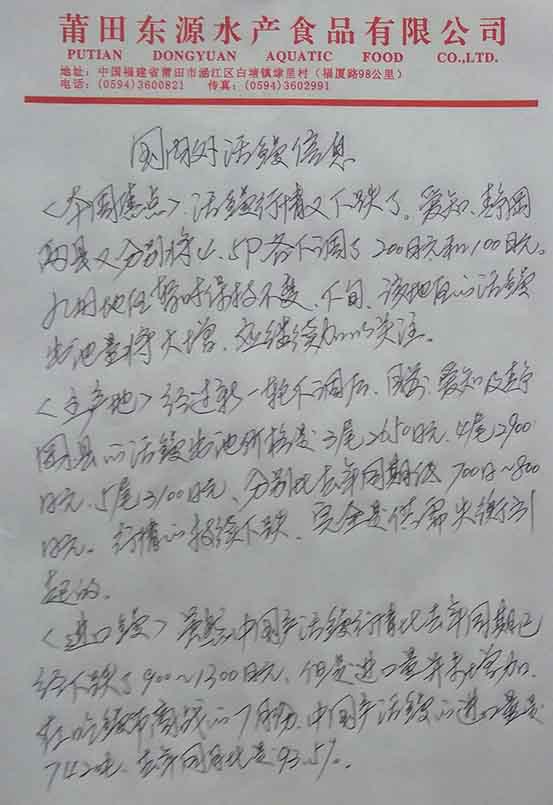 莆田东源水产食品有限公司
PUTIAN DONGYUAN AQUATIC FOOD CO.,LTD.
地址：中国福建省莆田市涵江区白塘镇埭里村（福厦路98公里）
电话：(0594)3600821 传真：(0594)3602991
国内外活鳗信息
<本周焦点>.活鳗行情又下跌了。爱知、静冈
两县又分别将4、5P各下调了200日元和100日元。
九州地区暂时保持不变、下旬、该地区的活鳗
出池量将大增、应继续加以关注。
<主产地>经过新一轮下调后、目前、爱知及静
冈县的活鳗出池价格是3尾2650日元、4尾2900
日元、5尾3100日元、分别比去年同期低700日~800
日元。行情的持续下跌、完全是供需失衡引
起的。
<进口鳗>虽然中国产活鳗行情比去年同期已
经下跌了900~1300日元、但是进口量并未增加.
在吃鳗节商战的7月份、中国产活鳗的进口量是
742吨、去年同月比是93.5%。